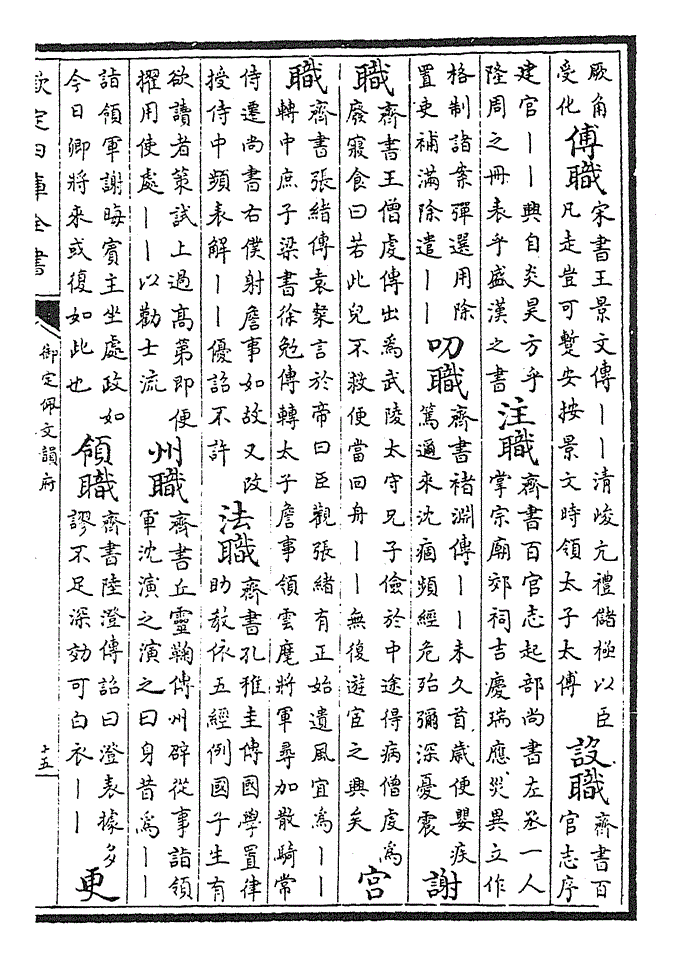 厥角
受化
傅職
宋書王景文傳丨丨清峻亢禮儲極以臣
凡走豈可蹔安按景文時領太子太傅
設職
齊書百
官志序
建官丨丨興自炎昊方乎
隆周之冊表乎盛漢之書
注職
齊書百官志起部尚書左丞一人
掌宗廟郊祠吉慶瑞應災異立作
格制諸案彈選用除
置吏補滿除遣丨丨
叨職
齊書褚淵傳丨丨未久首歲便嬰疾
篤邇來沈痼頻經危殆彌深憂震
謝
職
齊書王僧虔傳出為武陵太守兄子儉於中途得病僧虔為
廢寢食曰若此兒不救便當回舟丨丨無復遊宦之興矣
宮
職
齊書張緒傳袁粲言於帝曰臣觀張緒有正始遺風宜為丨丨
轉中庶子梁書徐勉傳轉太子詹事領雲麾將軍尋加散騎常
侍遷尚書右僕射詹事如故又改
授侍中頻表解丨丨優詔不許
法職
齊書孔稚圭傳國學置律
助教依五經例國子生有
欲讀者策試上過高第即便
擢用使處丨丨以勸士流
州職
齊書丘靈鞠傳州辟從事詣領
軍沈演之演之曰身昔為丨丨
詣領軍謝晦賓主坐處政如
今日卿將來或復如此也
領職
齊書陸澄傳詔曰澄表據多
謬不足深劾可白衣丨丨
更
欽定四庫全書
御定佩文韻府
十五